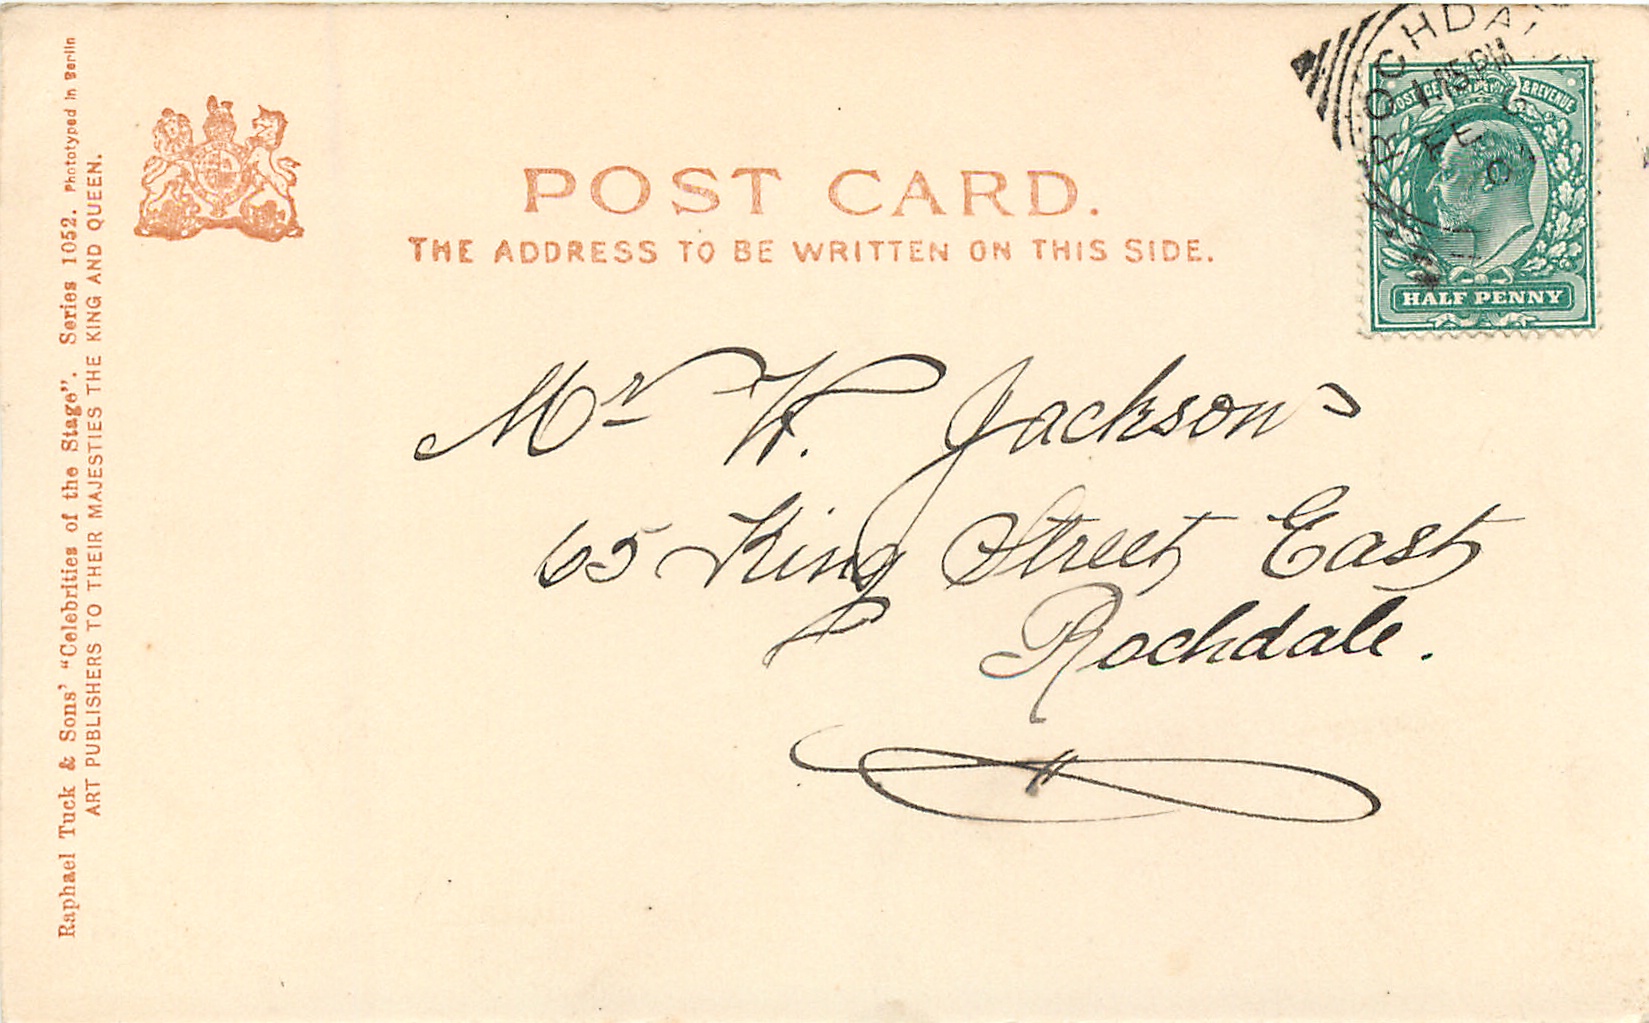 POST CARD.
THE ADDRESS TO BE WRITTEN ON THIS SIDE.
Raphael Tuck & Sons' "Celebrities of the Stage". Series 1052. Phototyped in Berlin
ART PUBLISHERS TO THEIR MAJESTIES THE KING AND QUEEN.
POSTAGE & REVENUE
HALF PENNY
1.15 PM
FE
Mr Jackson
65 King Street East
Rochdale.